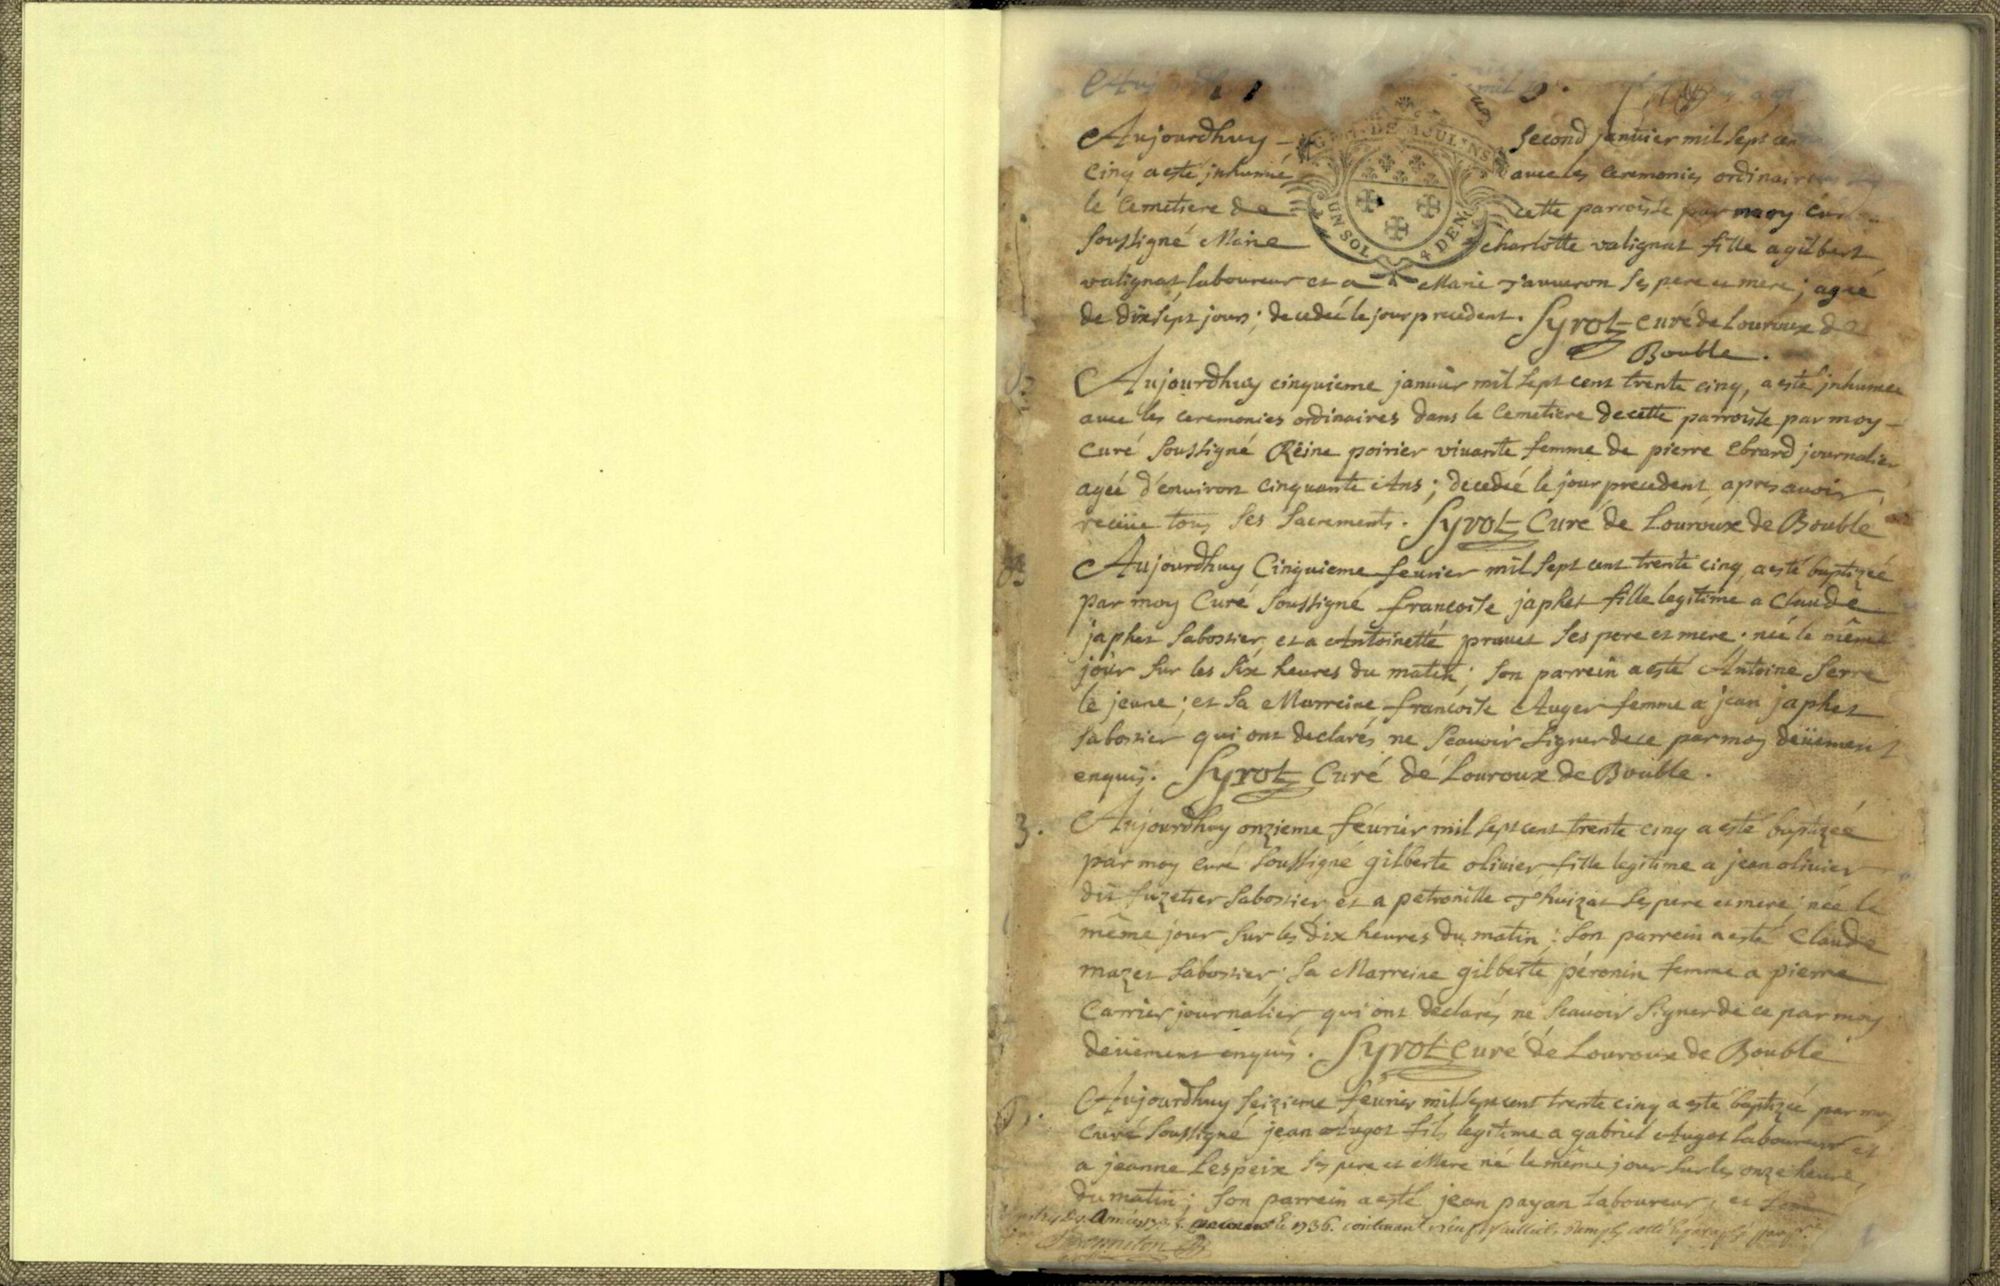 Aujourdhuy
Aujourdhuy – second januier mil sept cen
GEN. DE MOULINS
UN SOL 4 DEN
cinq a esté jnhumé auec les ceremonies ordinaires
le cemetiere de cette parroisse par moy curé
soussigné Marie charlotte valignat fille a gilbert
valignat laboureur et a Marie Tauueron ses pere et mere; ageé
de dixsept jours; decedeé le jour precedent. Syrot curé de Louroux de
Bouble.
Aujourdhuy cinquieme januier mil sept cent trente cinq, a esté jnhumeé
auec les ceremonies ordinaires dans le cemetiere de cette parroisse par moy –
curé soussigné Reine poirier viuante femme de pierre Ebrard journalier
ageé d'enuiron cinquante Ans; decedeé le jour precedent, apres auoir
receüe tous ses sacrements. Syrot Curé de Louroux de Bouble
Aujourdhuy Cinquieme feurier mil sept cent trente cinq, a esté baptizeé
par moy Curé soussigné francoise japhet fille legitime a Claude
japhet sabottier, et a Antoinette prauet ses pere et mere. neé le même
jour sur les six heures du matin; son parrein a esté Antoine Serre
le jeune; et sa Marreine francoise Auger femme a jean japhet
sabottier qui ont declarés ne scauoir signer de ce par moy deüement
enquis. Syrot Curé de Louroux de Bouble.
3. Aujourdhuy onzieme féurier mil sept cent trente cinq a esté baptizeé
par moy curé soussigné gilberte oliuier fille legitime a jean oliuier
dit fuzetier sabottier et a petronille Thuizat ses pere et mere; neé le
même jour sur les dix heures du matin; son parrein a esté Claude
mazet sabottier; sa Marreine gilberte péronin femme a pierre
Carrier journalier qui ont declarés ne scauoir signer de ce par moy
deüement enquis. Syrot curé de Louroux de Bouble
Aujourdhuy seizieme féurier mil sept cent trente cinq a esté baptizeé par moy
curé soussigné jean Augot fils legitime a gabriel Augot laboureur et
a jeanne Lespeix ses pere et Mere né le même jour sur les onze heures
du matin; son parrein a esté jean payan laboureur, et
1736. contenant neuf feuillets